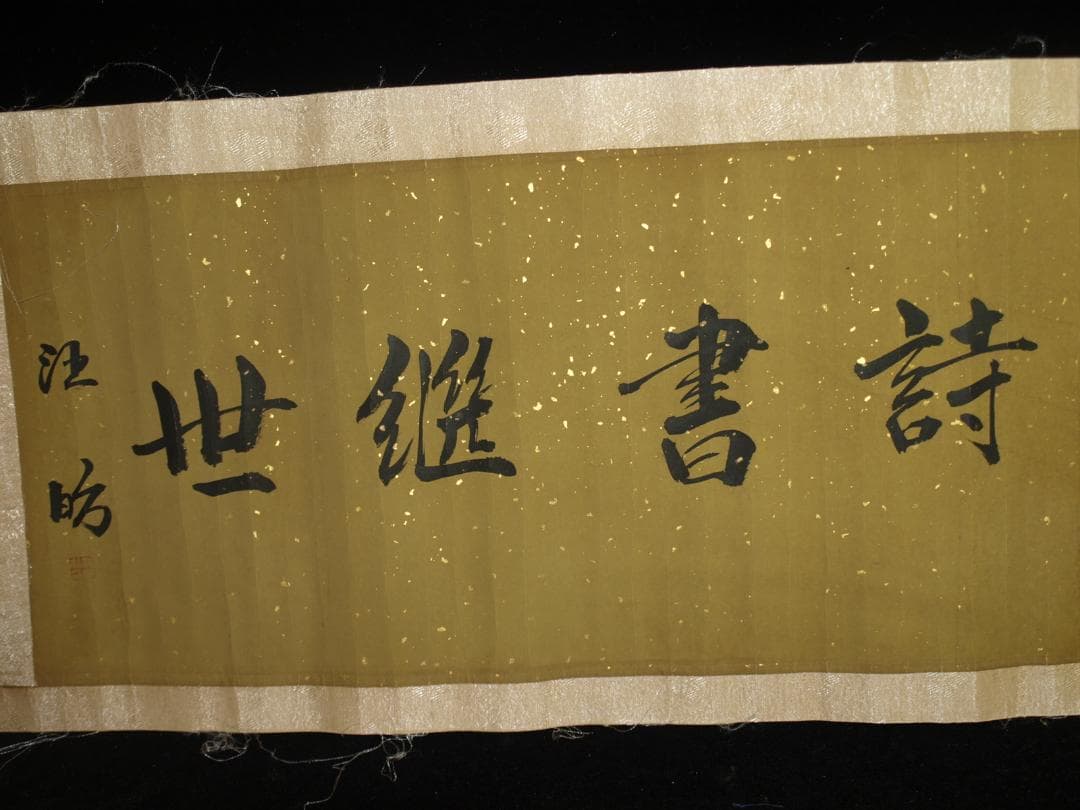 詩書繼世
汪昉